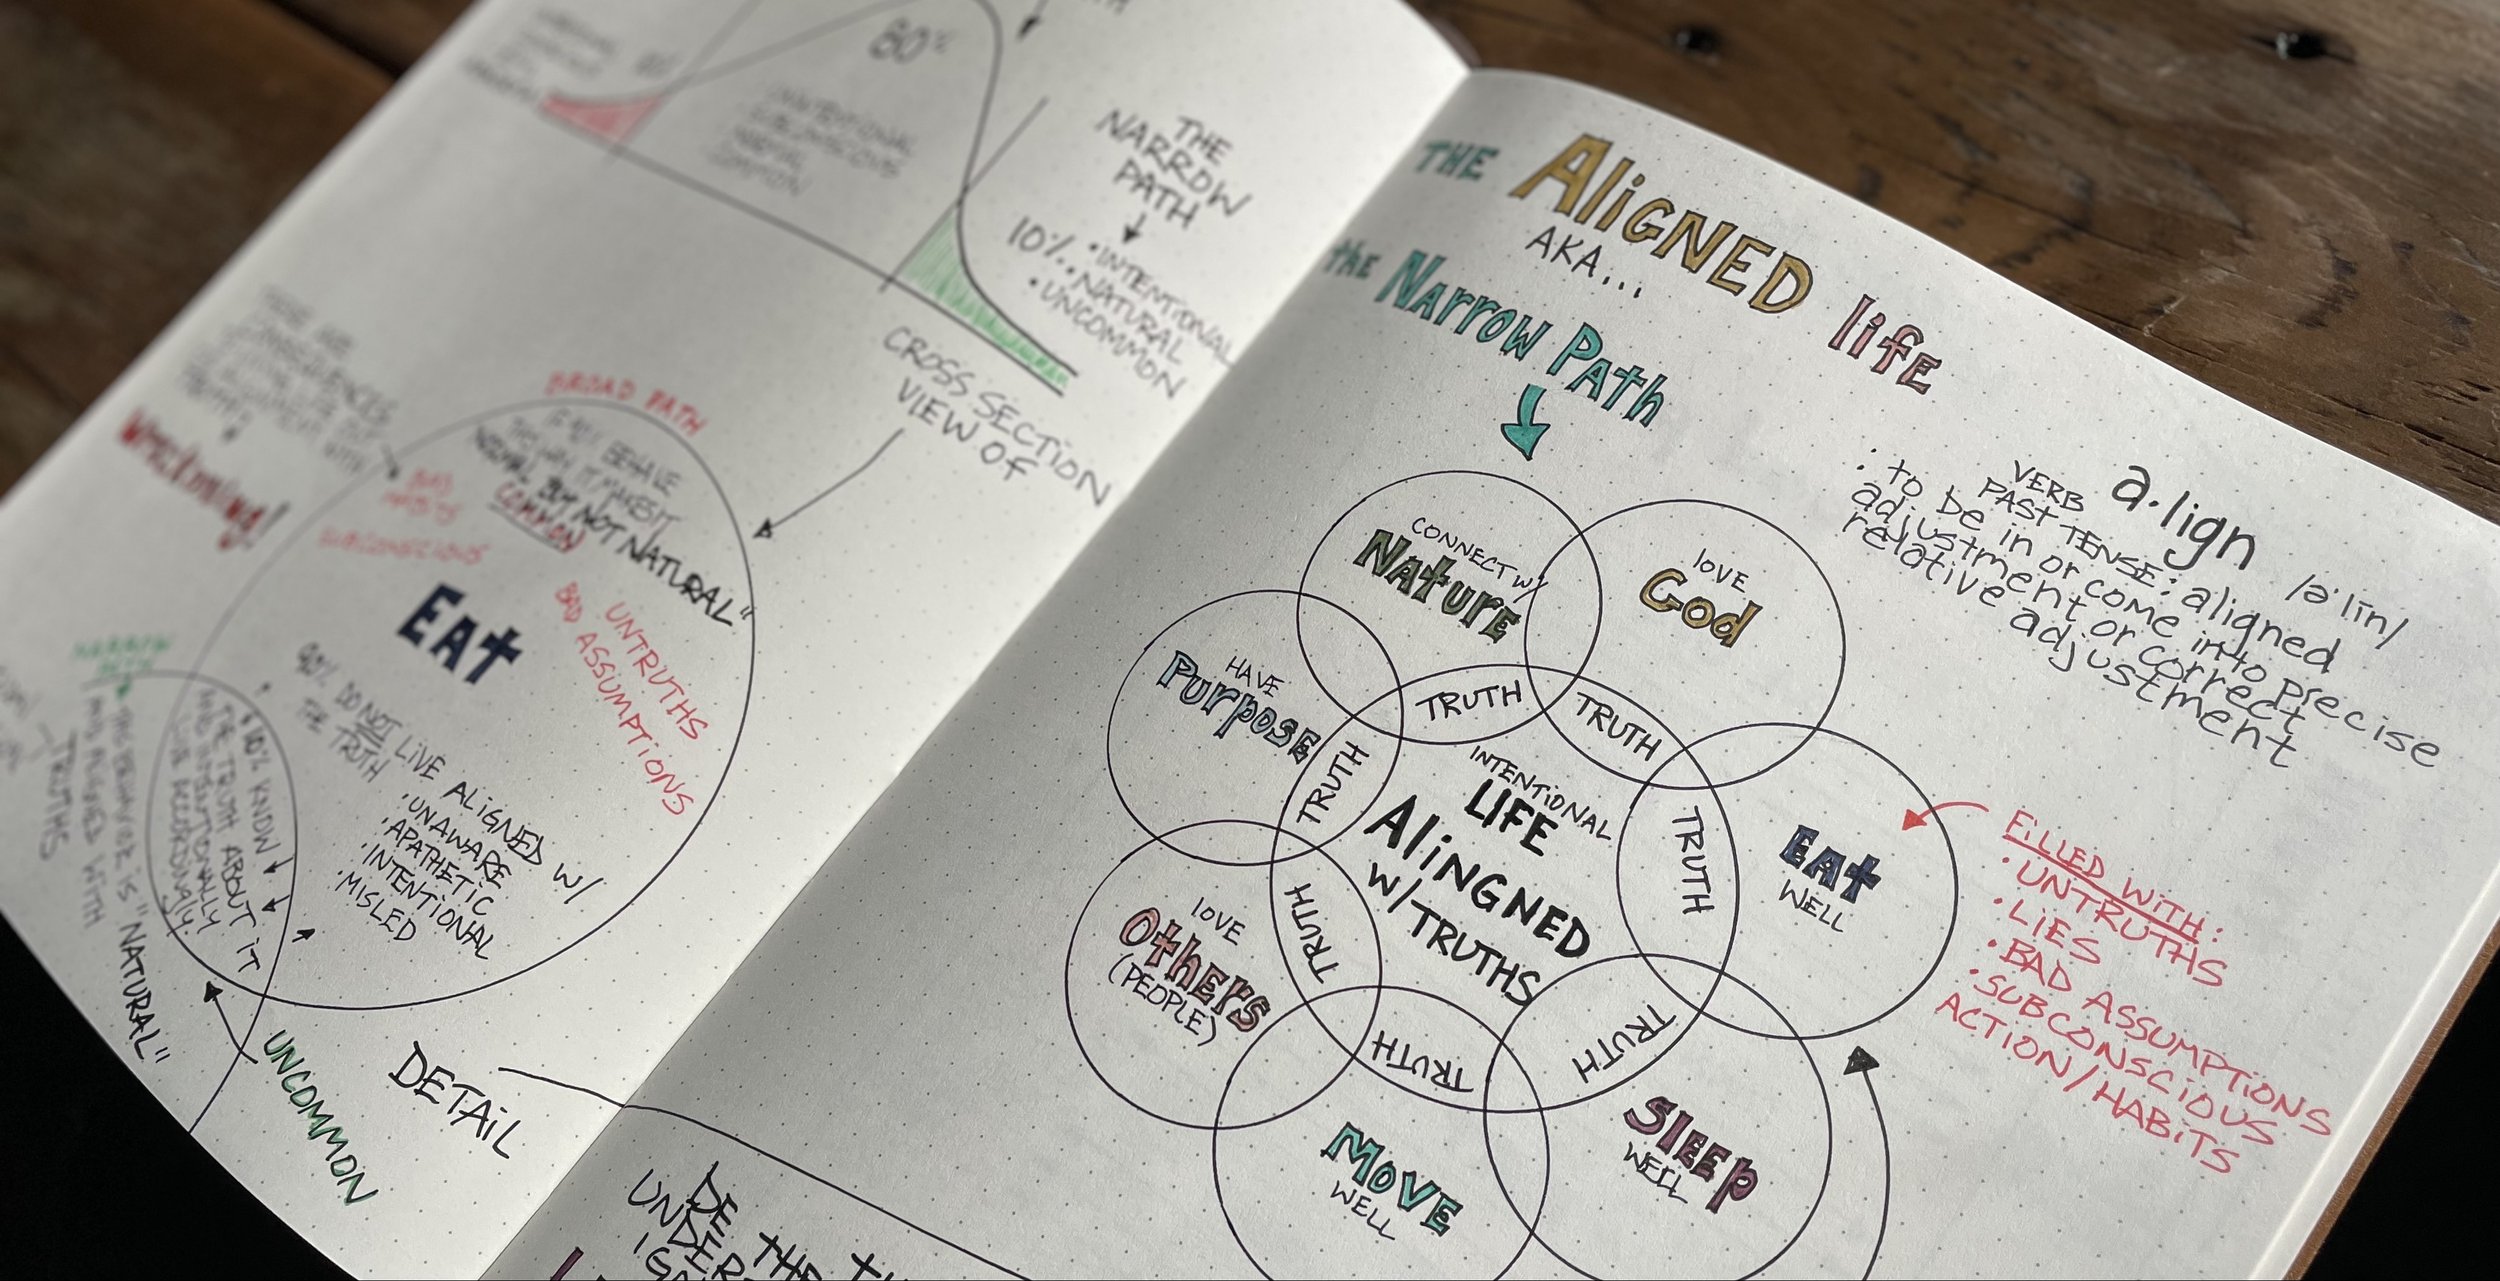 80%
THE
NARROW
PATH
10%
• INTENTIONAL
• NATURAL
• UNCOMMON
CROSS SECTION
VIEW OF
CONSEQUENCES
BROAD PATH
BEHAVE
THE WAY IT MAKES IT
NORMAL BUT NOT NATURAL"
COMMON
BAD
HABITS
SUBCONSCIOUS
UNTRUTHS
BAD ASSUMPTIONS
EAt
90% DO NOT LIVE ALIGNED W/
THE TRUTH
• UNAWARE
• APATHETIC
• INTENTIONAL
• MISLED
NARROW
PATH
10% KNOW
THE TRUTH ABOUT IT
AND INTENTIONALLY
LIVE ACCORDINGLY
THIS BEHAVIOR IS "NATURAL"
AND ALIGNED WITH
TRUTHS
UNCOMMON
DETAIL
THE AliGNED lifE
AKA...
the NArrow PAth
a·lign /ə'līn/
VERB
PAST TENSE: aligned
: to be in or come into precise
adjustment or correct
relative adjustment
CONNECT W/
NAture
lOVE
God
HAVE
Purpose
EAt
WELL
lOVE
OthErs
(PEOPLE)
MOVE
WELL
SlEEp
WELL
TRUTH
TRUTH
TRUTH
TRUTH
TRUTH
TRUTH
TRUTH
INTENTIONAL
LIFE
AliNGNED
W/TRUTHS
FILLED WITH:
• UNTRUTHS
• LIES
• BAD ASSUMPTIONS
• SUBCONSCIOUS
ACTION/HABITS